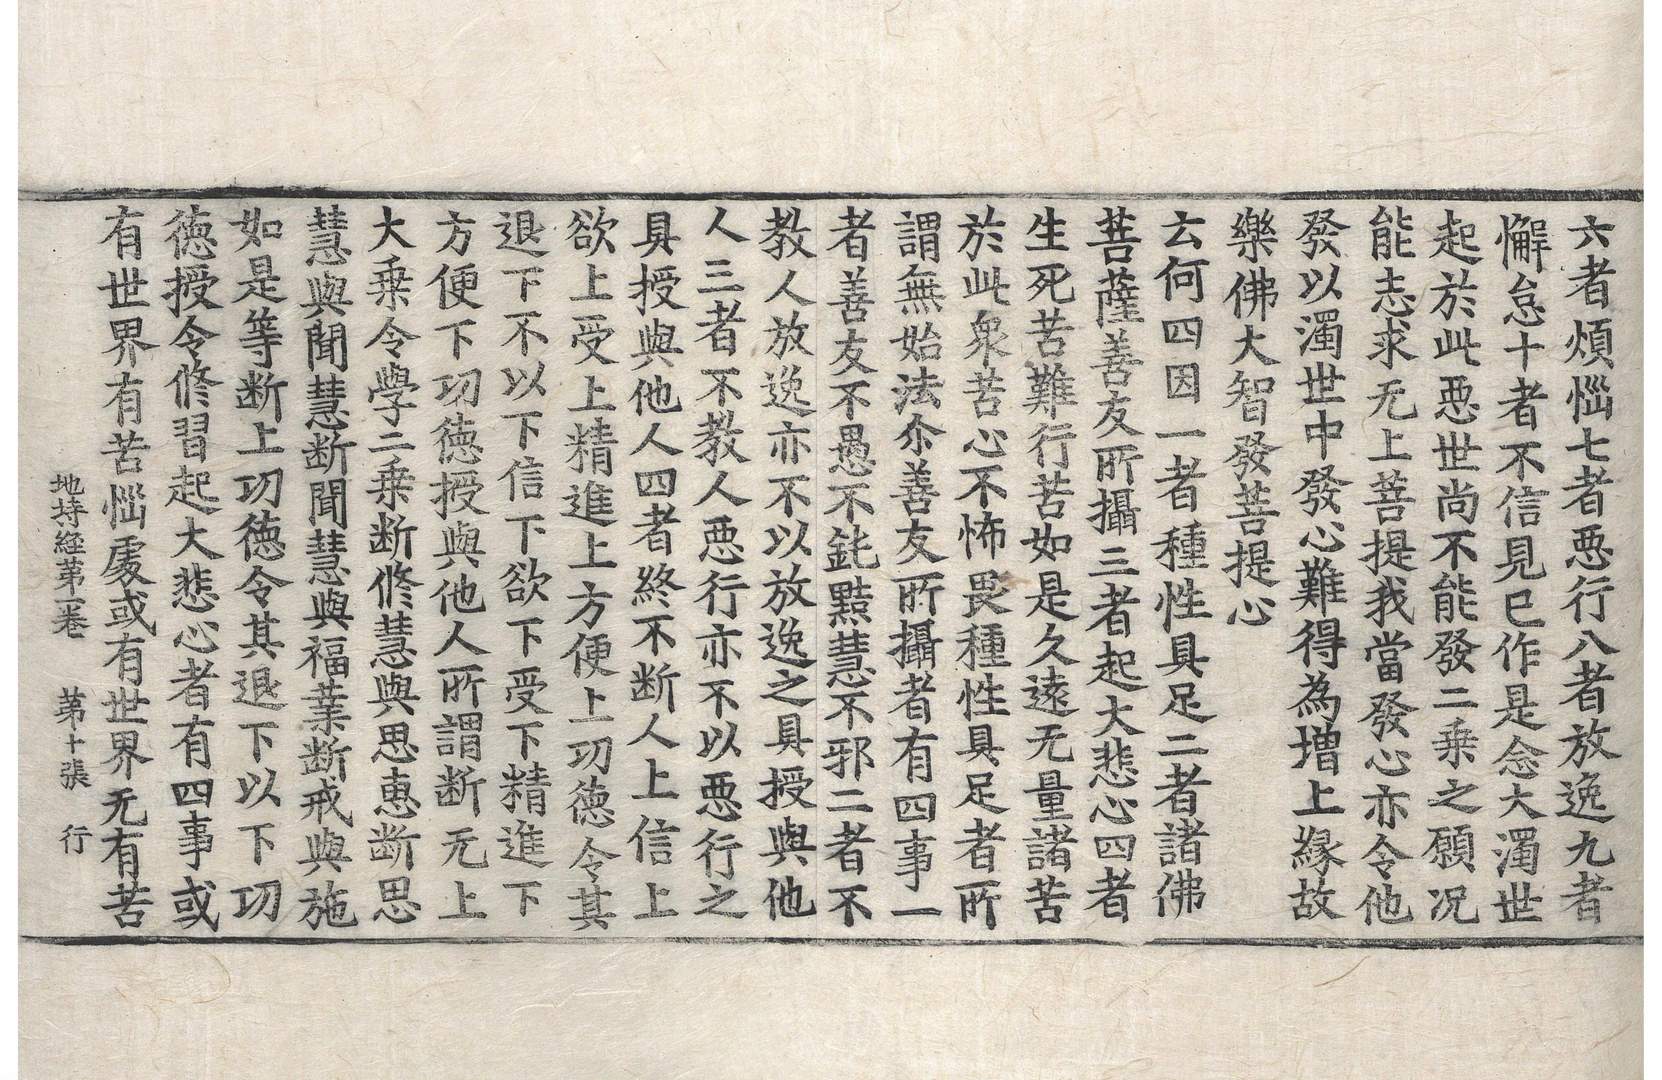 六者煩惱七者惡行八者放逸九者
懈怠十者不信見已作是念大濁世
起於此惡世尚不能發二乗之願况
能志求无上菩提我當發心亦令他
發以濁世中發心難得為增上緣故
樂佛大智發菩提心
云何四因一者種性具足二者諸佛
菩薩善友所攝三者起大悲心四者
生死苦難行苦如是久遠无量諸苦
於此衆苦心不怖畏種性具足者所
謂無始法尒善友所攝者有四事一
者善友不愚不鈍黠慧不邪二者不
教人放逸亦不以放逸之具授與他
人三者不教人惡行亦不以惡行之
具授與他人四者終不断人上信上
欲上受上精進上方便上功德令其
退下不以下信下欲下受下精進下
方便下功徳授與他人所謂断无上
大乗令學二乗断修慧與思惠断思
慧與聞慧断聞慧與福業断戒與施
如是等断上功徳令其退下以下功
徳授令修習起大悲心者有四事或
有世界有苦惱處或有世界无有苦
地持経第一卷 第十張 行